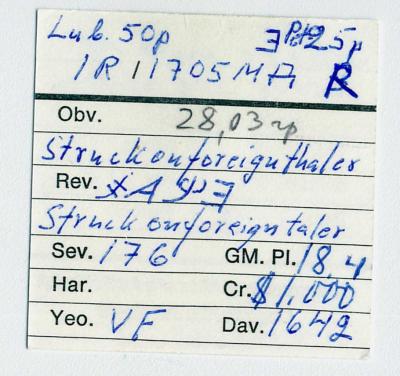 Lub. 50p Petr 25p
1R 11705MA R
Obv. 28,03 гр
Struck on foreign thaler
Rev.
Struck on foreign taler
Sev. 176 GM. Pl. 18,4
Har. Cr. $1,000
Yeo. VF Dav. 1642